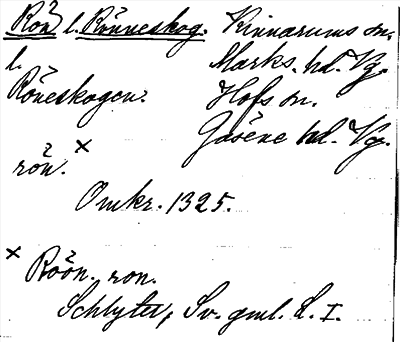 Rön l. Rönneskog. Kinnarums sn.
l. Marks. hd. Vg.
Röneskogen. Hofs sn.
Gäsene hd. Vg.
rön. ×
Omkr. 1325.
× Röön. ron.
Schlyter, Sv. gml. L. I.